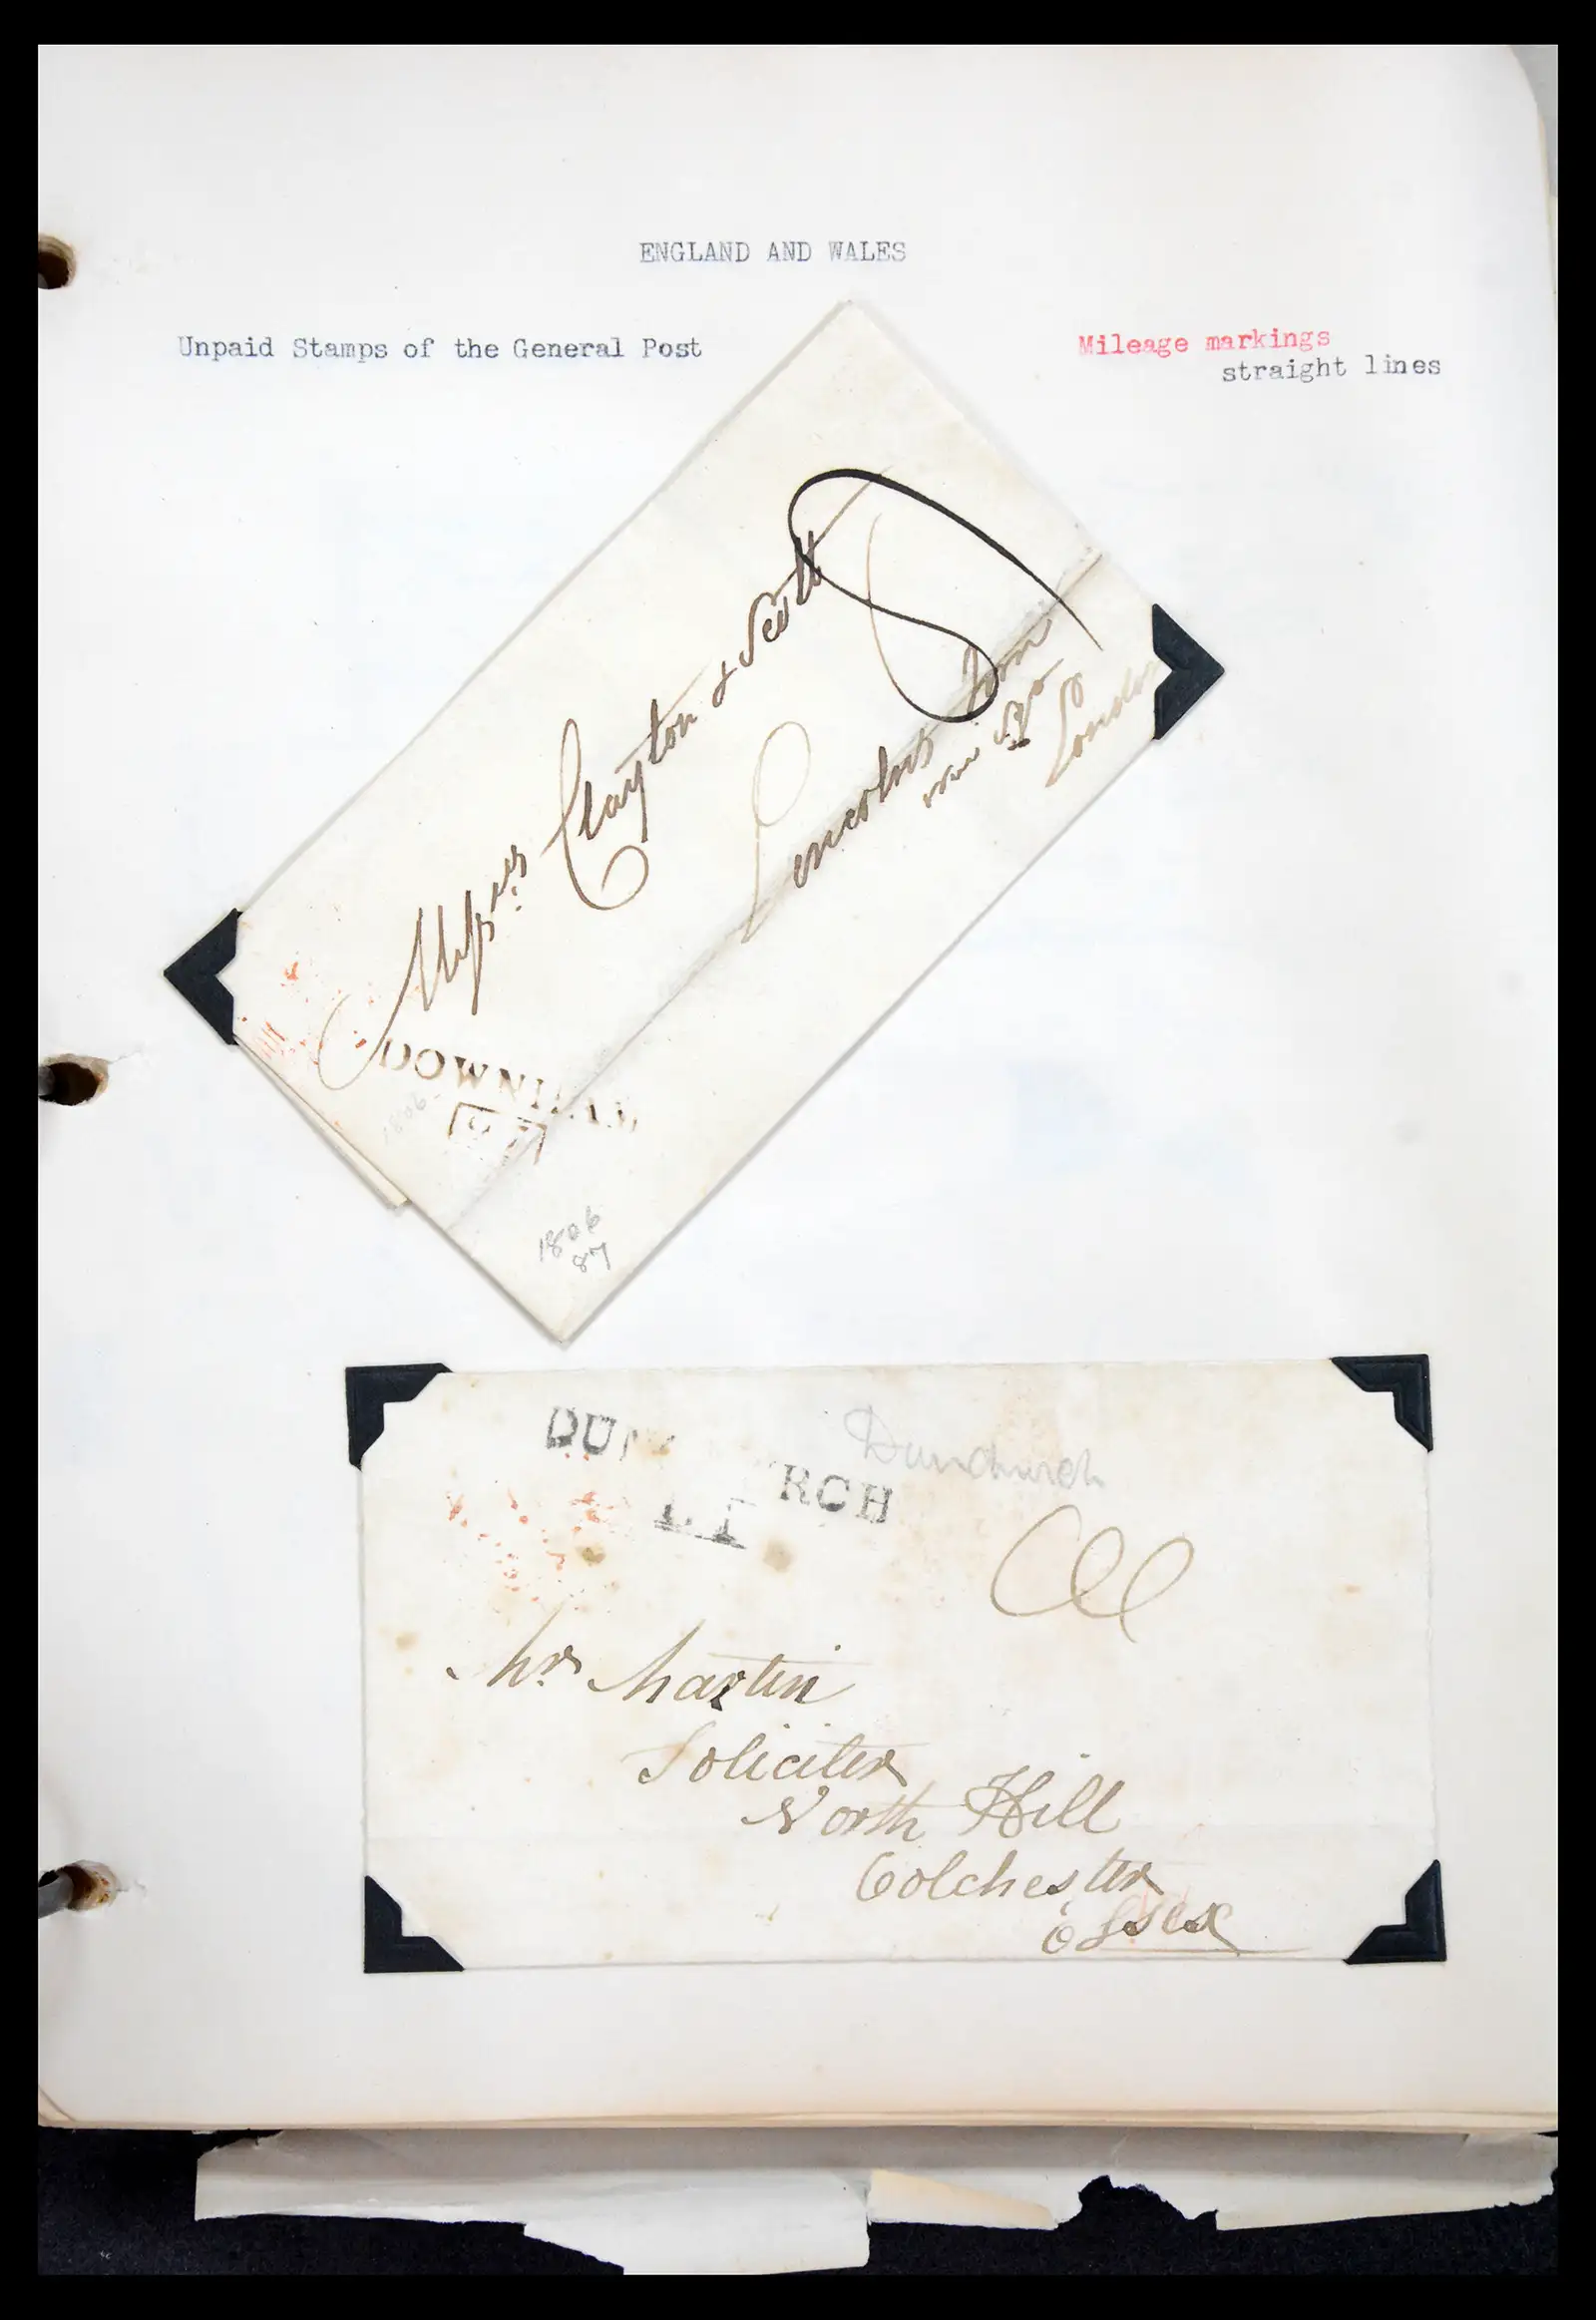 ENGLAND AND WALES
Unpaid Stamps of the General Post
Mileage markings
straight lines
Messrs Clayton & Scott
Lincolns Inn
new Sqr
London
DOWNHAM
1806
1806
87
DU RCH
Dunchurch
Mr. Martin
Soliciter
North Hill
Colchester
Essex